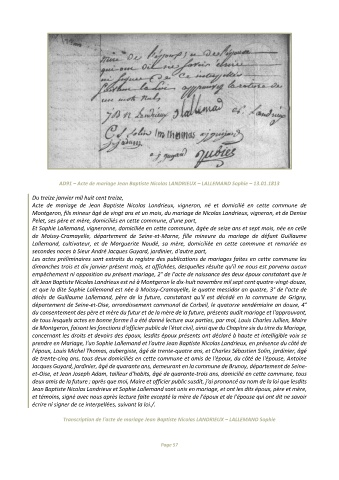 AD91 – Acte de mariage Jean Baptiste Nicolas LANDRIEUX – LALLEMAND Sophie – 13.01.1813
Du treize janvier mil huit cent treize,
Acte de mariage de Jean Baptiste Nicolas Landrieux, vigneron, né et domicilié en cette commune de
Montgeron, fils mineur âgé de vingt ans et un mois, du mariage de Nicolas Landrieux, vigneron, et de Denise
Pelet, ses père et mère, domiciliés en cette commune, d'une part,
Et Sophie Lallemand, vigneronne, domiciliée en cette commune, âgée de seize ans et sept mois, née en celle
de Moissy-Cramayelle, département de Seine-et-Marne, fille mineure du mariage de défunt Guillaume
Lallemand, cultivateur, et de Marguerite Naudé, sa mère, domiciliée en cette commune et remariée en
secondes noces à Sieur André Jacques Guyard, jardinier, d'autre part,
Les actes préliminaires sont extraits du registre des publications de mariages faites en cette commune les
dimanches trois et dix janvier présent mois, et affichées, desquelles résulte qu'il ne nous est parvenu aucun
empêchement ni opposition au présent mariage, 2° de l'acte de naissance des deux époux constatant que
ledit Jean Baptiste Nicolas Landrieux est né à Montgeron le dix-huit novembre mil sept cent quatre-vingt douze,
et que la dite Sophie Lallemand est née à Moissy-Cramayelle, le quatre messidor an quatre, 3° de l'acte de
décès de Guillaume Lallemand, père de la future, constatant qu'il est décédé en la commune de Grigny,
département de Seine-et-Oise, arrondissement communal de Corbeil, le quatorze vendémiaire an douze, 4°
du consentement des père et mère du futur et de la mère de la future, présents audit mariage et l'approuvant,
de tous lesquels actes en bonne forme il a été donné lecture aux parties, par moi, Louis Charles Jullien, Maire
de Montgeron, faisant les fonctions d'officier public de l'état civil, ainsi que du Chapitre six du titre du Mariage,
concernant les droits et devoirs des époux, lesdits époux présents ont déclaré à haute et intelligible voix se
prendre en Mariage, l'un Sophie Lallemand et l'autre Jean Baptiste Nicolas Landrieux, en présence du côté de
l'époux, Louis Michel Thomas, aubergiste, âgé de trente-quatre ans, et Charles Sébastien Solin, jardinier, âgé
de trente-cinq ans, tous deux domiciliés en cette commune et amis de l'époux, du côté de l'épouse, Antoine
Jacques Guyard, jardinier, âgé de quarante ans, demeurant en la commune de Brunoy, département de Seine-
et-Oise, et Jean Joseph Adam, tailleur d'habits, âgé de quarante-trois ans, domicilié en cette commune, tous
deux amis de la future ; après que moi, Maire et officier public susdit, j'ai prononcé au nom de la loi que lesdits
Jean Baptiste Nicolas Landrieux et Sophie Lallemand sont unis en mariage, et ont les dits époux, père et mère,
et témoins, signé avec nous après lecture faite excepté la mère de l'époux et de l'épouse qui ont dit ne savoir
écrire ni signer de ce interpellées, suivant la loi./.
Transcription de l'acte de mariage Jean Baptiste Nicolas LANDRIEUX – LALLEMAND Sophie
Page 57